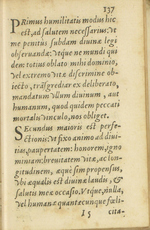 137
PRimus humilitatis modus hic
est, ad salutem necessarius: vt
me penitus subdam diuinæ legi
obseruandæ: vtque ne mundi qui
dem totius oblato mihi dominio,
vel extremo vitæ discrimine ob
iecto, trãsgrediar ex deliberato,
mandatum vllum diuinum, aut
humanum, quod quidem peccati
mortalis vinculo, nos obliget.
SEcundus maioris est perfe-
ctionis: vt fixo animo ad diui-
tias, paupertatem: honorem, igno
miniam: breuitatem vitæ, ac lon-
gitudinem, æquè sim propensus,
vbi æqualis est diuinæ laudis, &
salutis meæ occasio. Vtque, nulla,
vel humanæ quantæcunque fœli-
I 5 cita-